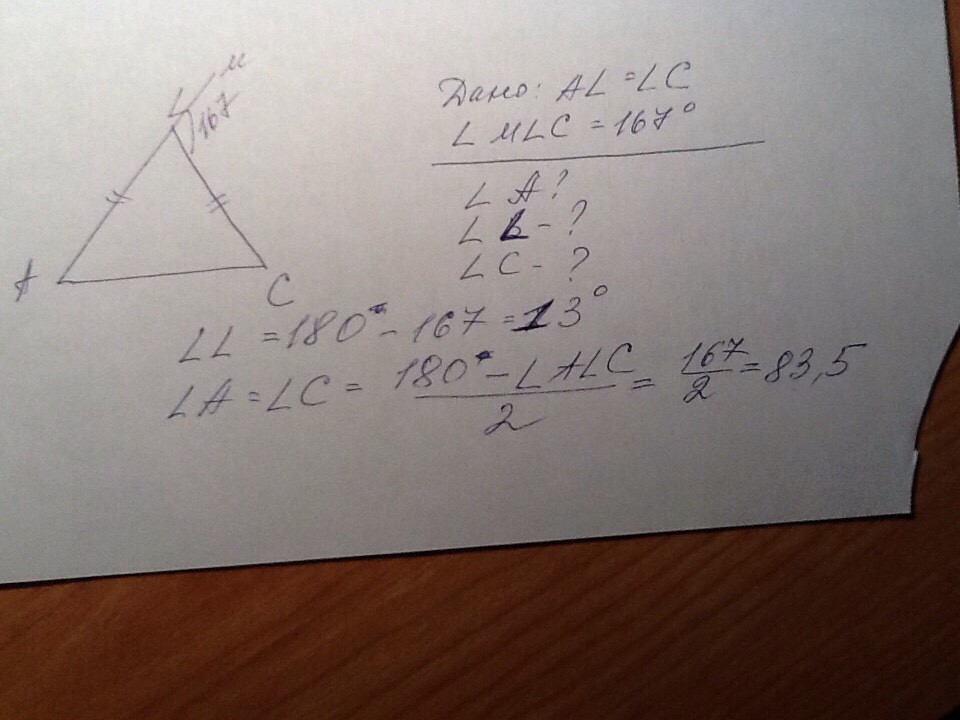 M
L
167
A
C
Дано: AL = LC
∠ MLC = 167°
∠ A?
∠ L - ?
∠ C - ?
∠L = 180° - 167 = 13°
∠A = ∠C = (180° - ∠ALC)/2 = 167/2 = 83,5